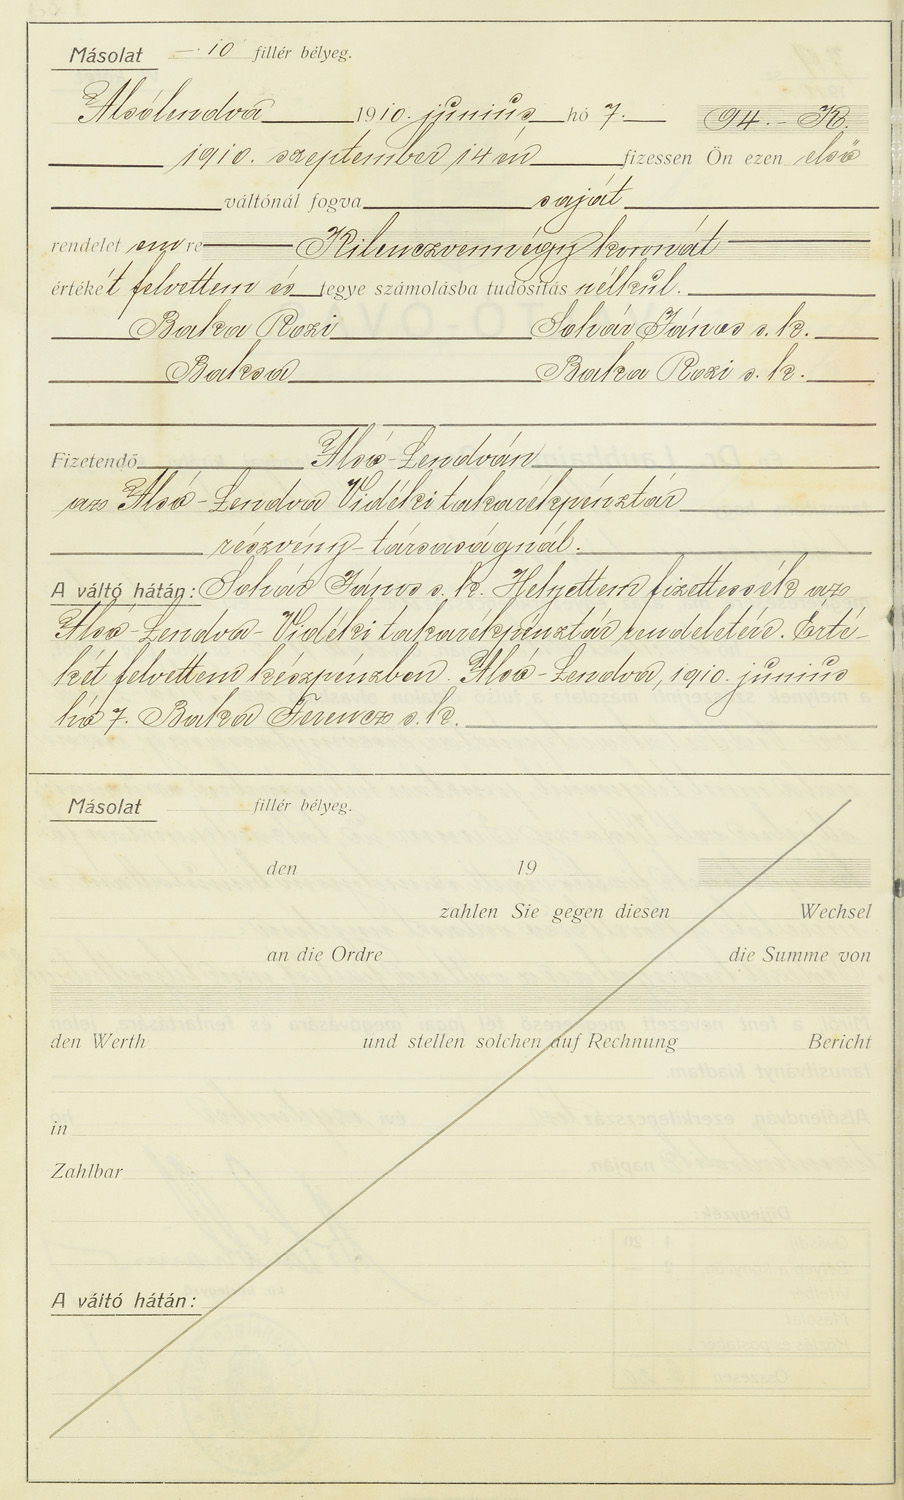 Másolat — 10 fillér bélyeg.
Alsólendva 1910. junius hó 7. 94.- K.
1910. szeptember 14 én fizessen Ön ezen első
váltónál fogva saját
rendelet em re Kilenczvennégy koronát
értékét felvettem és tegye számolásba tudósítás nélkül.
Baka Rozi Sohár János s. k.
Baksa Baka Rozi s. k.
Fizetendő Alsó-Lendván
az Alsó-Lendva Vidéki takarékpénztár
részvény-társaságnál.
A váltó hátán: Sohár János s. k. Helyettem fizettessék az
Alsó-Lendva-Vidéki takarékpénztár rendeletére. Érté-
két felvettem készpénzben. Alsó-Lendva, 1910. junius
hó 7. Baka Ferencz s. k.
Másolat fillér bélyeg.
den 19
zahlen Sie gegen diesen Wechsel
an die Ordre die Summe von
den Werth und stellen solchen auf Rechnung Bericht
in
Zahlbar
A váltó hátán: